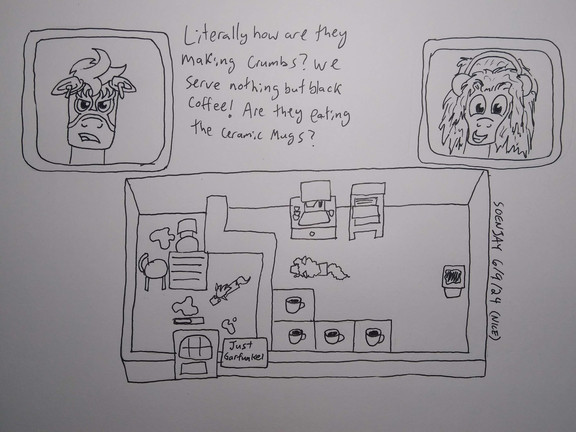 Literally how are they
making Crumbs? We
serve nothing but black
Coffee! Are they eating
the Ceramic Mugs?
Just
Garfunkel
SOENJAY 6/9/24 (NICE)